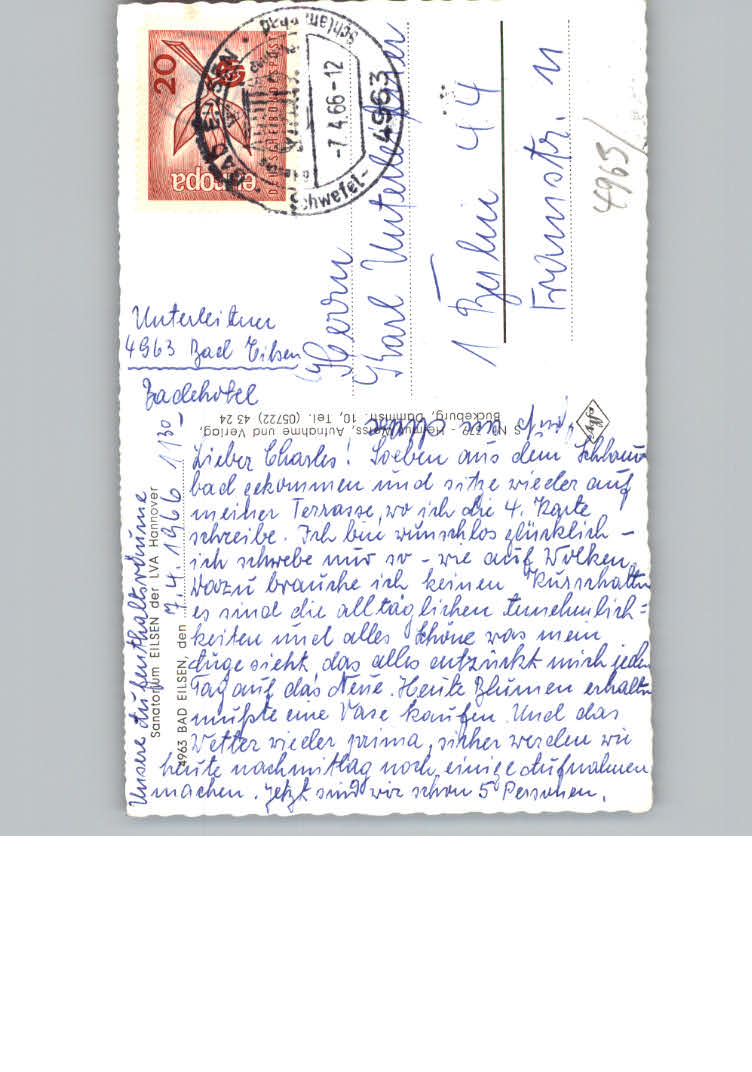 20
europa
DEUTSCHE BUNDESPOST
BAD EILSEN
-7.4.66-12
4963
Schwefel-
4963
Herrn
Karl Unterleitner
1 Berlin 44
Framstr. 11
Unterleitner
4963 Bad Eilsen
Badehotel
Bückeburg, Dammstr. 10, Tel. (05722) 43 24
Aufnahme und Verlag,
Unsere Aufenthaltsräume
Sanatorium EILSEN der LVA Hannover
4963 BAD EILSEN, den 7.4.1966 1130
Lieber Charles! Soeben aus dem Schlamm
bad gekommen und sitze wieder auf
meiner Terrasse, wo ich die 4. Karte
schreibe. Ich bin wunschlos glücklich –
ich schwebe nur so – wie auf Wolken.
Dazu brauche ich keinen
es sind die alltäglichen Annehmlich=
keiten und alles Schöne was mein
Auge sieht, das alles entzückt mich jeden
Tag auf das Neue. Heute Blumen erhalten
mußte eine Vase kaufen. Und das
Wetter wieder prima, sicher werden wir
heute nachmittag noch einige Aufnahmen
machen. Jetzt sind wir schon 5 Personen.